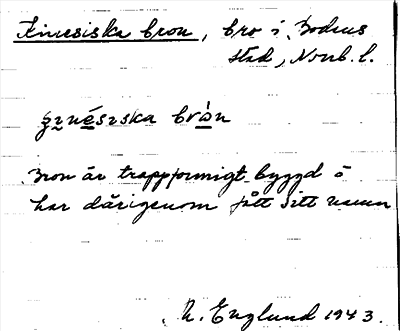 Kinesiska bron, bro i Bodens
stad, Norrb. l.
ꞩɪnésɪska brὠn
Bron är trappformigt byggd o
har därigenom fått sitt namn
N. Englund 1943.